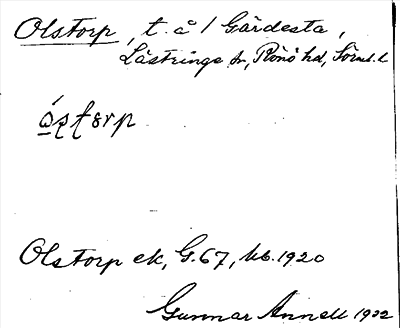 Olstorp, t. å / Gärdesta,
Lästringe sn, Rönö hd, Sörml. l.
Olstorp ek, G. 67, kb. 1920
Gunnar Annell 1932